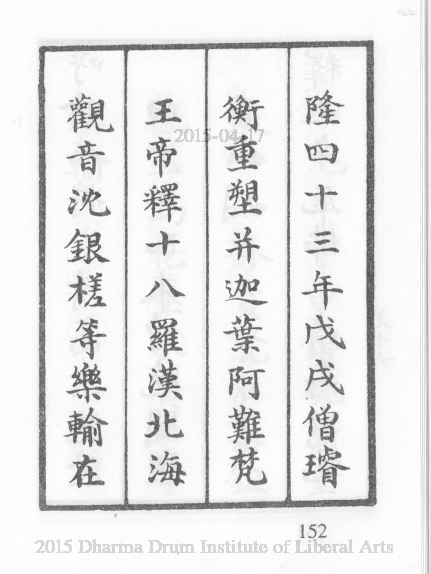 隆四十三年戊戌僧璿
衡重塑并迦葉阿難梵
王帝釋十八羅漢北海
觀音沈銀槎等樂輸在
2015-04-17
152
2015 Dharma Drum Institute of Liberal Arts